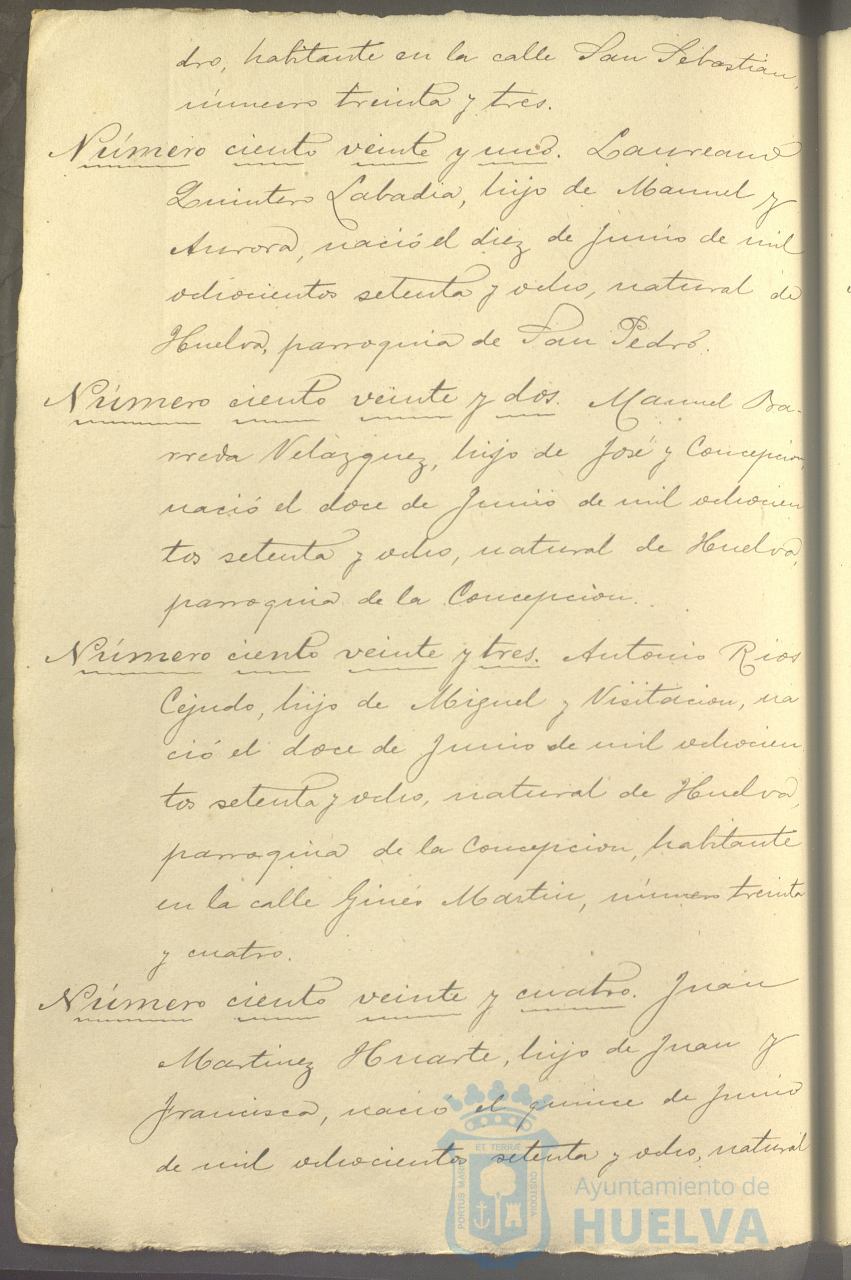 dro, habitante en la calle San Sebastián,
número treinta y tres.
Número ciento veinte y uno. Laureano
Quintero Labadia, hijo de Manuel y
Aurora, nació el diez de Junio de mil
ochocientos setenta y ocho, natural de
Huelva, parroquia de San Pedro.
Número ciento veinte y dos. Manuel Ba-
rreda Velázquez, hijo de José y Concepcion,
nació el doce de Junio de mil ochocien
tos setenta y ocho, natural de Huelva,
parroquia de la Concepcion.
Número ciento veinte y tres. Antonio Rios
Cejudo, hijo de Miguel y Visitacion, na
ció el doce de Junio de mil ochocien
tos setenta y ocho, natural de Huelva,
parroquia de la Concepcion, habitante
en la calle Ginés Martin, número treinta
y cuatro.
Número ciento veinte y cuatro. Juan
Martinez Huarte, hijo de Juan y
Francisca, nació el quince de Junio
de mil ochocientos setenta y ocho, natural
PORTUS MARIS ET TERRÆ CUSTODIA
Ayuntamiento de
HUELVA